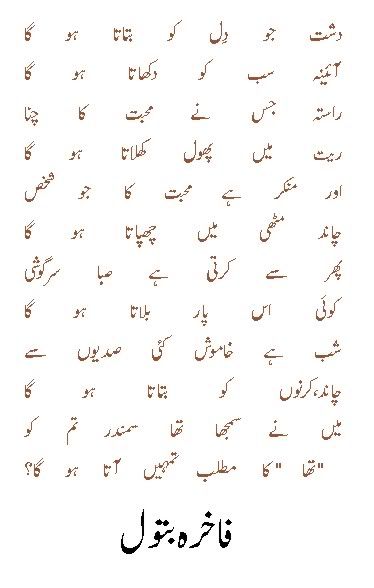 دشت جو دِل کو بتاتا ہو گا
آئینہ سب کو دکھاتا ہو گا
راستہ جس نے محبت کا چنا
ریت میں پھول کھلاتا ہو گا
اور منکر ہے محبت کا جو شخص
چاند مٹھی میں چھپاتا ہو گا
پھر سے کرتی ہے صبا سرگوشی
کوئی اس پار بلاتا ہو گا
شب ہے خاموش کئی صدیوں سے
چاند،کرنوں کو بتاتا ہو گا
میں نے سمجھا تھا سمندر تم کو
"تھا" کا مطلب تمہیں آتا ہو گا؟
فاخرہ بتول